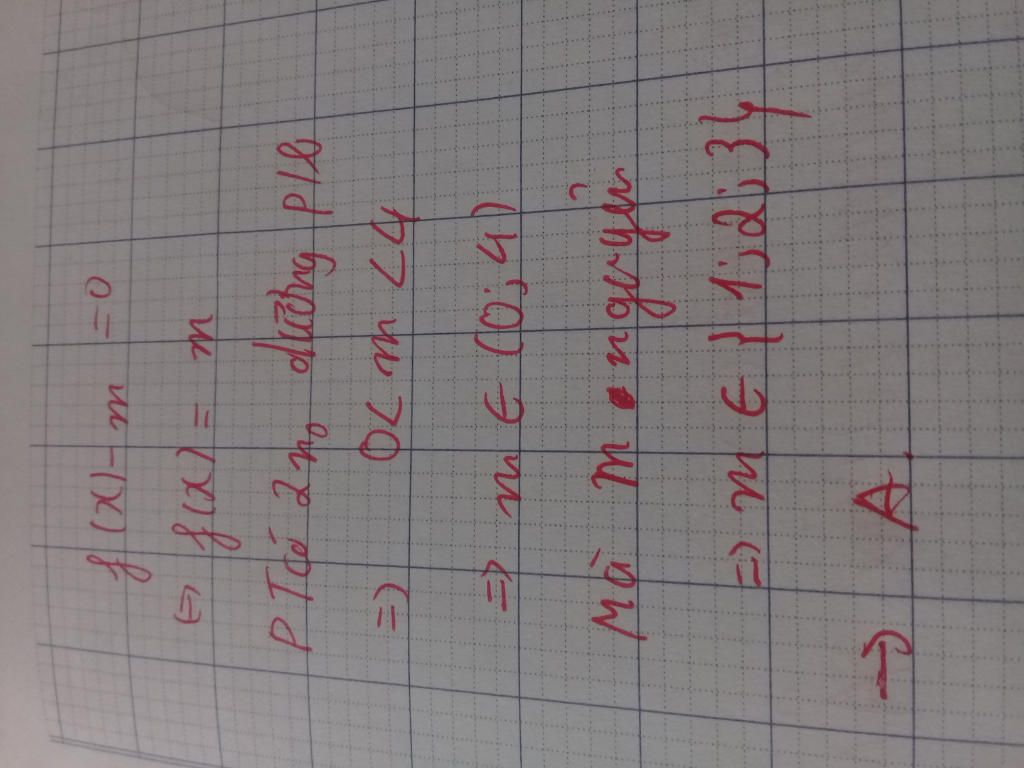 f(x) - m = 0
(=) f(x) = m
PT có 2 n₀ dương p/b
=) 0 < m < 4
=) m ∈ (0; 4)
Mà m nguyên
=) m ∈ { 1; 2; 3}
=) A.